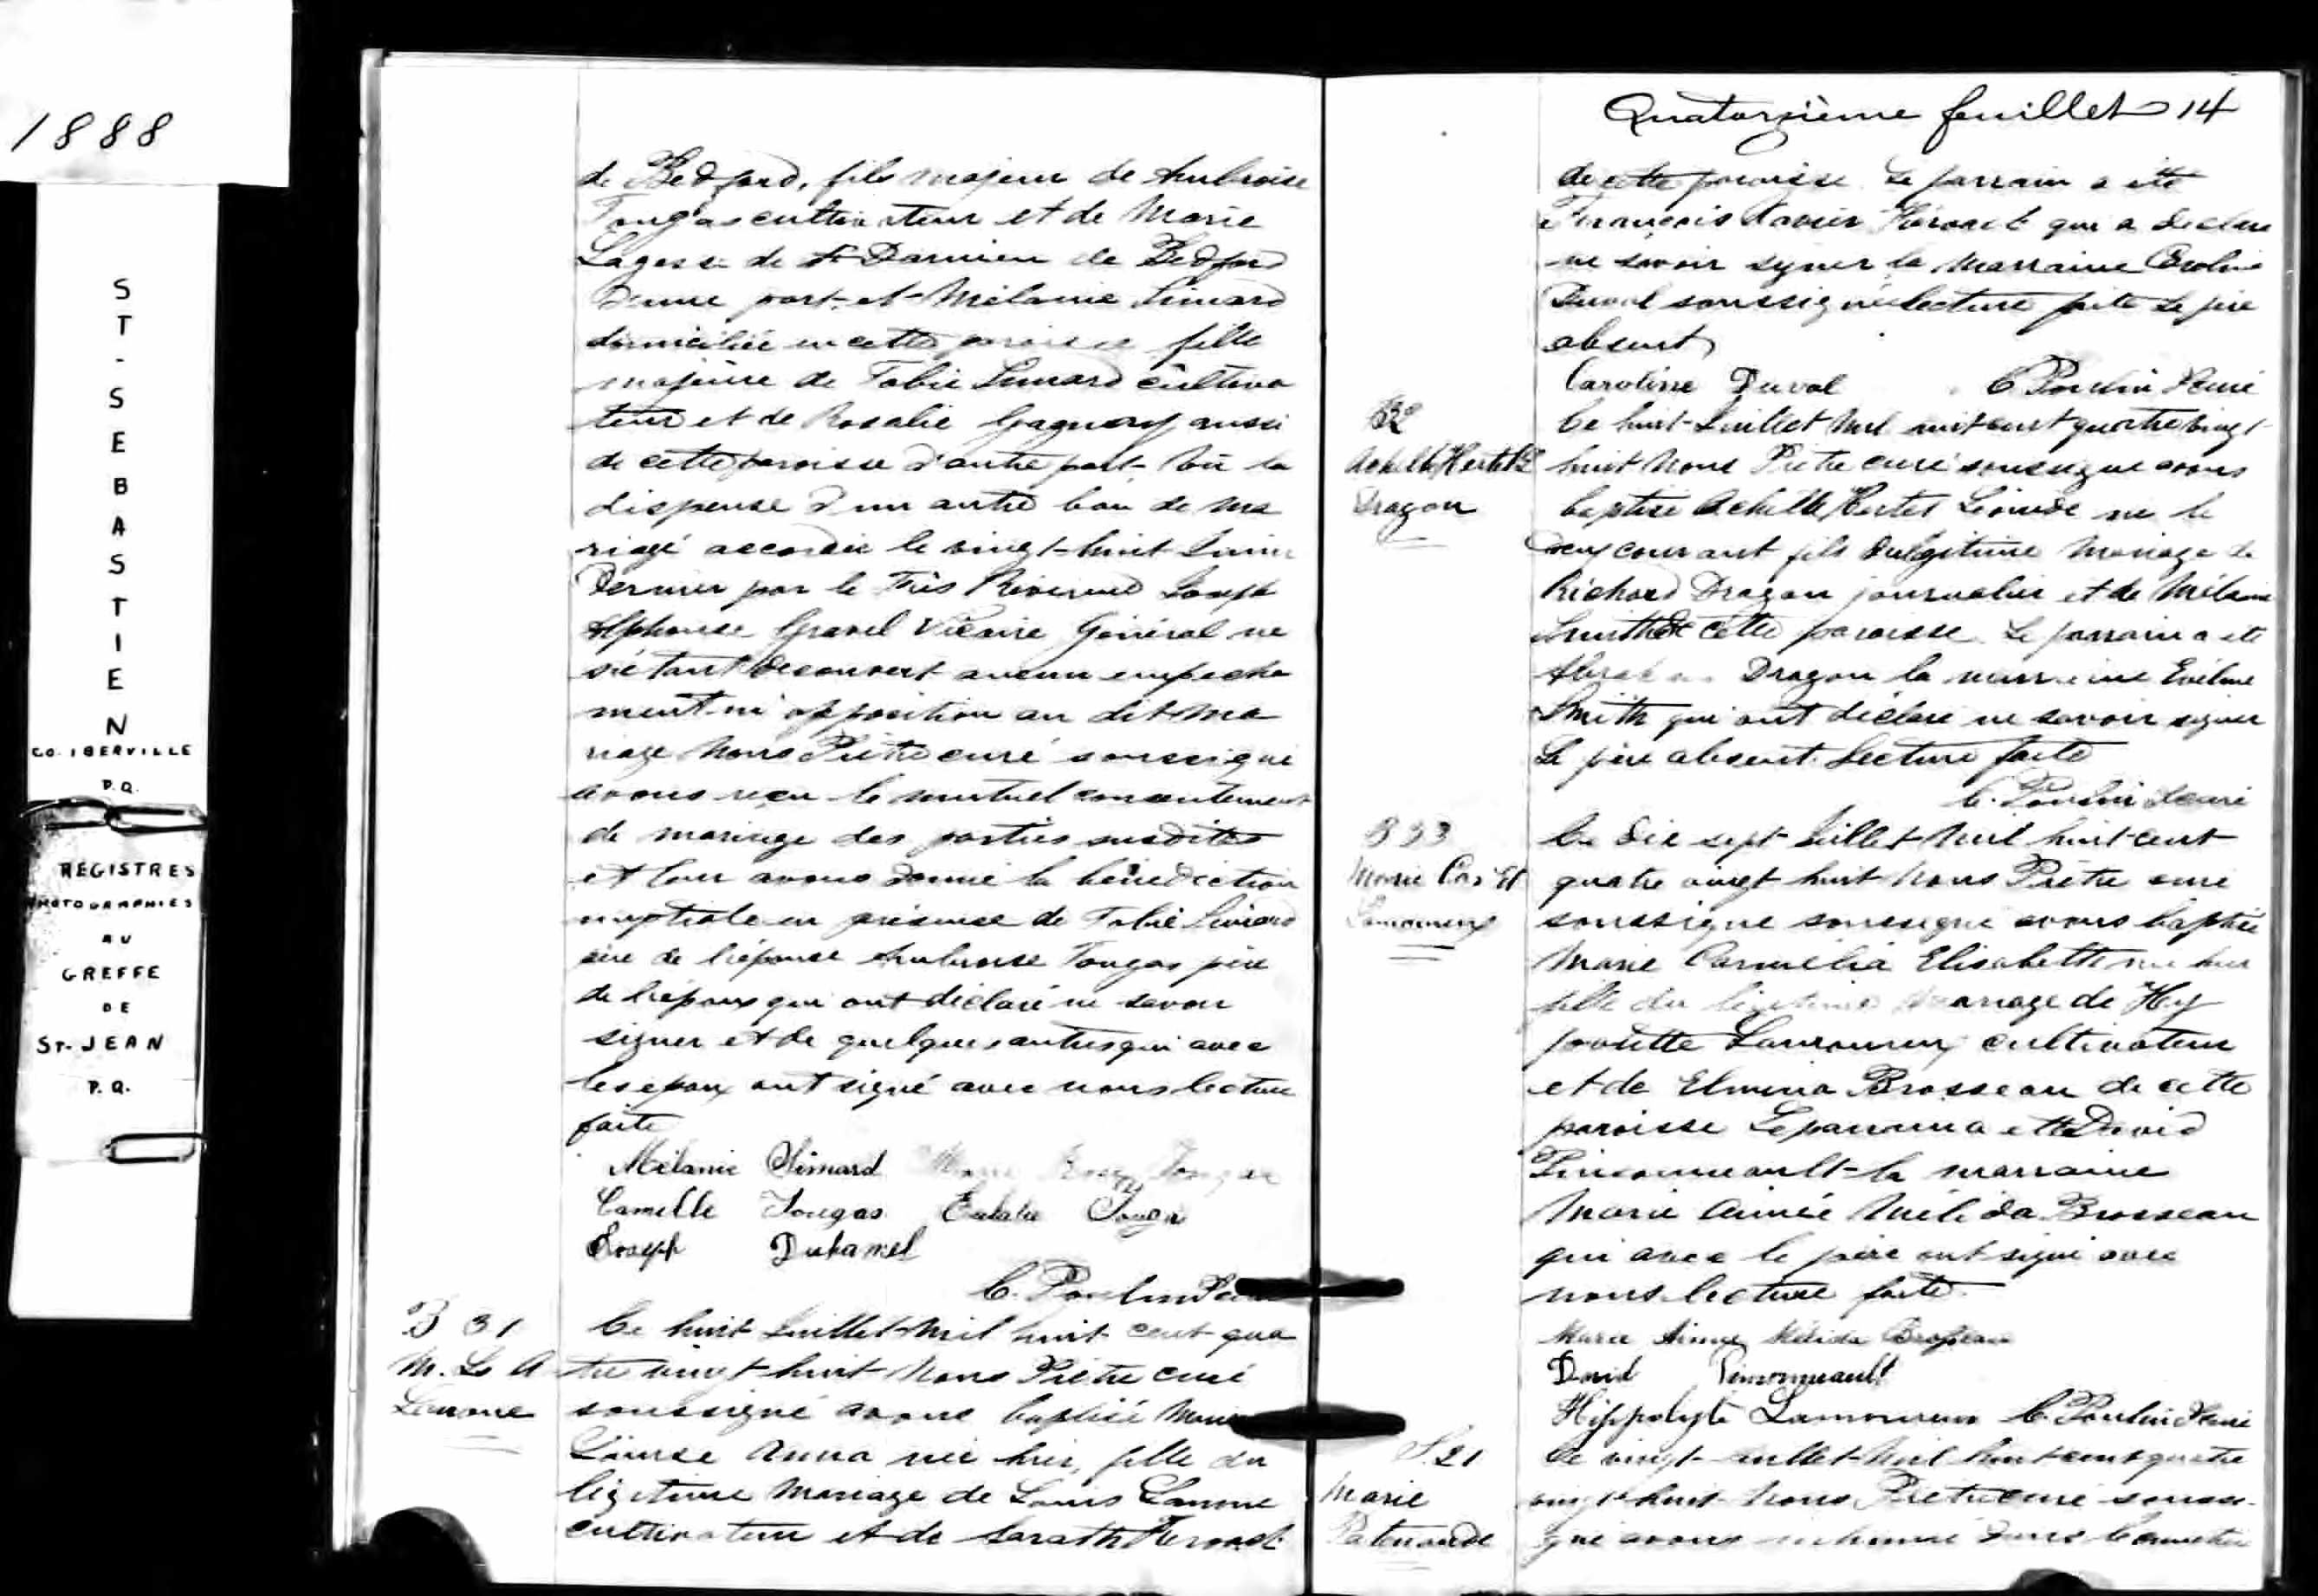 1888
ST-SEBASTIEN
CO. IBERVILLE
P.Q.
REGISTRES
PHOTOGRAPHIES
AU
GREFFE
DE
ST. JEAN
P.Q.
de Bedford, fils majeur de Ambroise
Tougas cultivateur et de Marie
Lagesse de St Damien de Bedford
D'une part et Mélanie Simard
domiciliée en cette paroisse fille
majeure de Tobie Simard cultiva
teur et de Rosalie Gagnory aussi
de cette paroisse d'autre part Vu la
dispense d'un autre ban de ma
riage accordée le vingt-huit Juin
Dernier par le Très Réverend Joseph
Alphonse Gravel Vicaire Général ne
s'étant découvert aucun empeche
ment ni opposition au dit ma
riage Nous Prêtre curé soussigné
avons reçu le mutuel consentement
de mariage des parties susdittes
et leur avons donné la bénédiction
nuptiale en présence de Tobie Simard
père de l'épouse Ambroise Tougas père
de l'époux qui ont déclaré ne savoir
signer et de quelques autres qui avec
les epoux ont signé avec nous lecture
faite
Mélanie Simard Tougas
Camille Tougas Eulalie Tougas
Joseph Duhamel
C. Poulin
B 31
M. Ls A
Lamore
Ce huit Juillet Mil huit cent qua
tre vingt-huit Nous Prêtre curé
soussigné avons baptisé Marie
Louise Anna née hier, fille du
légitime Mariage de Louis
cultivateur et de Sarath
Quatorzième feuillet 14
de cette paroisse Le parrain a été
François Xavier qui a declare
ne savoir signer la Marraine Caroline
Duval soussignée lecture faite Le père
absent
Caroline Duval C Poulin Ptre curé
B 32
Achille Hertel L
Dragon
Ce huit Juillet Mil huit cent quatre vingt
huit Nous Prêtre curé soussigné avons
baptisé Achille Hertel Léonide né le
deux courant fils du légitime Mariage de
Richard Dragon journalier et de Mélanie
Smith de cette paroisse. Le parrain a été
Abraham Dragon la marraine Evéline
Smith qui ont déclaré ne savoir signer
Le père absent. Lecture faite
C. Poulin Ptre curé
B 33
Marie Car El
Lamoureux
Ce dix sept Juillet Mil huit cent
quatre vingt huit Nous Prêtre curé
soussigné soussigné avons baptisé
Marie Carmélia Elisabeth née hier
fille du légitime Mariage de Hy
politte Lamoureux cultivateur
et de Elmina Brosseau de cette
paroisse Le parrain a été David
Pinsonneault la marraine
Marie Aimée Mélida Brosseau
qui avec le père ont signé avec
nous lecture faite.
Marie Aimée Mélida Brosseau
David Pinsonneault
Hippolyte Lamoureux C. Poulin Ptre curé
S. 21
Marie
Patenaude
Ce vingt Juillet Mil huit cent quatre
vingt huit Nous Prêtre curé soussi
gné avons inhumé dans le cimetière